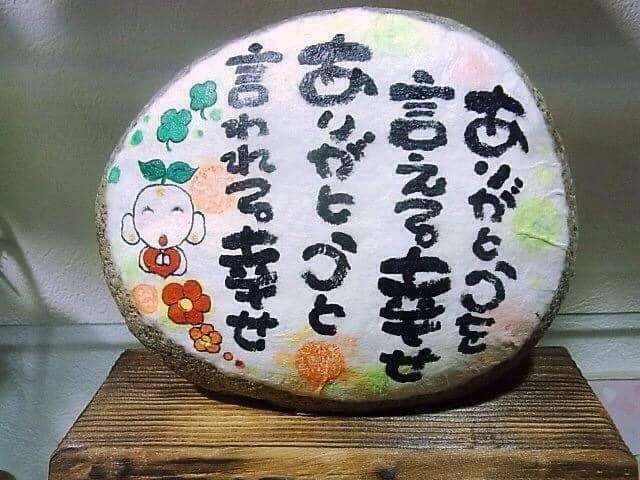 ありがとうを
言える幸せ
ありがとうと
言われる幸せ